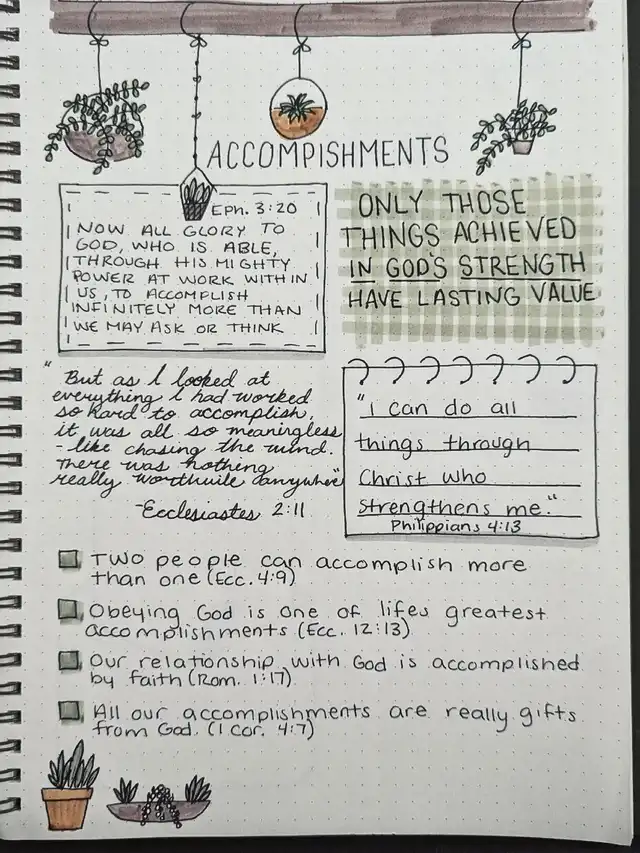 ACCOMPISHMENTS
EPh. 3:20
NOW ALL GLORY TO
GOD, WHO IS ABLE,
THROUGH HIS MIGHTY
POWER AT WORK WITHIN
US, TO ACCOMPLISH
INFINITELY MORE THAN
WE MAY ASK OR THINK
ONLY THOSE
THINGS ACHIEVED
IN GOD'S STRENGTH
HAVE LASTING VALUE
"But as I looked at
everything I had worked
so hard to accomplish,
it was all so meaningless
- like chasing the wind.
There was nothing
really worthwile anywhere"
- Ecclesiastes 2:11
"I can do all
things through
Christ who
strengthens me."
Philippians 4:13
TWO people can accomplish more
than one (Ecc. 4:9)
Obeying God is one of lifes greatest
accomplishments (Ecc. 12:13)
Our relationship with God is accomplished
by faith (Rom. 1:17)
All our accomplishments are really gifts
from God. (1 Cor. 4:7)